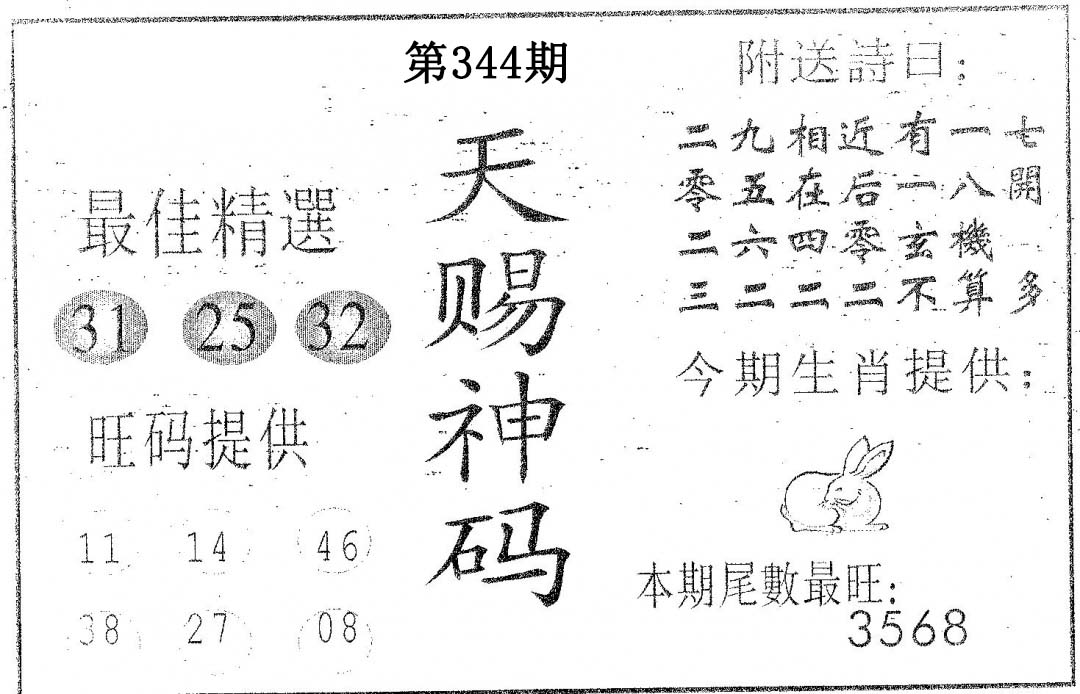 第344期
最佳精選
31 25 32
旺码提供
11 14 46
38 27 08
天赐神码
附送詩曰：
二九相近有一七
零五在后一八開
二六四零玄機
三二二二不算多
今期生肖提供：
本期尾數最旺：
3568